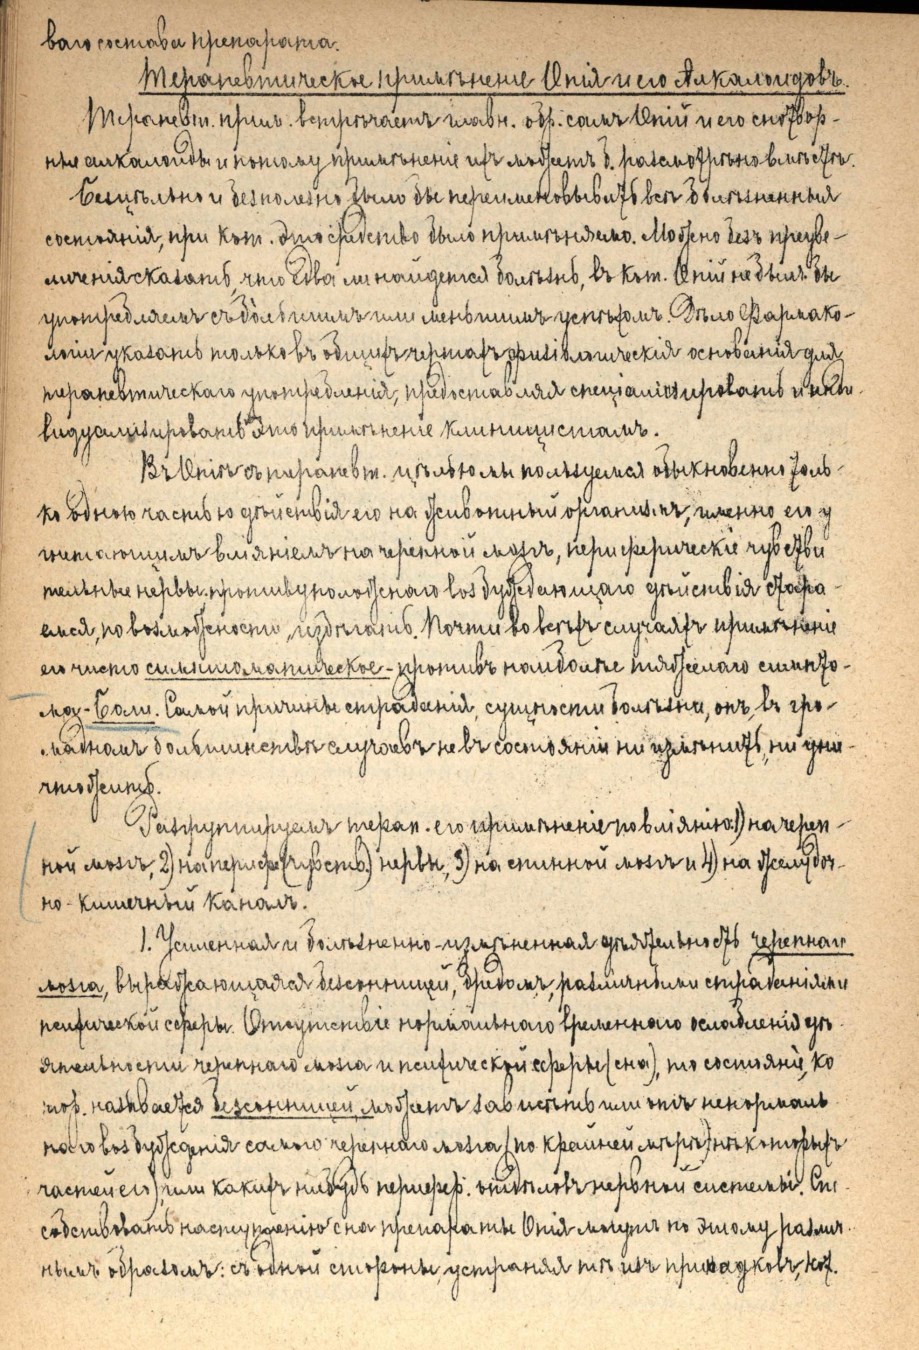 ваго состава препарата.
Терапевтическое примѣненіе Опія и его Алкалоидовъ.
Терапевт. прим. встрѣчаетъ главн. обр. самъ Опій и его снотвор-
ные алкалоиды и потому примѣненіе ихъ можетъ б. разсмотрѣно вмѣстѣ.
Безцѣльно и безполезно было бы переименовывать всѣ болѣзненныя
состоянія, при кот. это средство было примѣняемо. Можно безъ преуве-
личенія сказать, что едва ли найдется болѣзнь, въ кот. Опій не былъ бы
употребляемъ съ большимъ или меньшимъ успѣхомъ. Дѣло Фармако-
логіи указать только въ общихъ чертахъ физіологическія основанія для
терапевтическаго употребленія, предоставляя спеціализировать и инди-
видуализировать это примѣненіе клиницистамъ.
Въ Опіѣ съ терапевт. цѣлью мы пользуемся обыкновенно толь-
ко одною частью дѣйствія его на животный организмъ, именно его у
гнетающимъ вліяніемъ на черепной мозгъ, периферическіе чувстви
тельные нервы. противуположнаго возбуждающаго дѣйствія стара-
емся, по возможности, избѣгать. Почти во всѣхъ случаяхъ примѣненіе
его чисто симптоматическое - противъ наиболѣе тяжелаго симпто-
ма - боли. Самой причины страданія, сущности болѣзни, онъ, въ гро-
мадномъ большинствѣ случаевъ не въ состояніи ни измѣнить, ни уни-
чтожить.
Разгруппируемъ терап. его примѣненіе по вліянію: 1) на череп-
ной мозгъ, 2) на периф. (чувств.) нервы, 3) на спинной мозгъ и 4) на желудоч-
но-кишечный каналъ.
1. Усиленная и болѣзненно-измѣненная дѣятельность черепнаго
мозга, выражающаяся безсонницей, бредомъ, различными страданіями
психической сферы. Отсутствіе нормальнаго временнаго ослабленія дѣ-
ятельности черепнаго мозга и психической сферы (сна), то состояніе, ко
тор. называется безсонницей, можетъ зависѣть или отъ ненормаль
наго возбужденія самого черепнаго мозга (по крайней мѣрѣ нѣкоторыхъ
частей его), или какихъ нибудь перифер. отдѣловъ нервной системы. Спо
собствовать наступленію сна препараты Опія могутъ по этому различ-
нымъ образомъ: съ одной стороны, устраняя тѣ изъ припадковъ, кот.